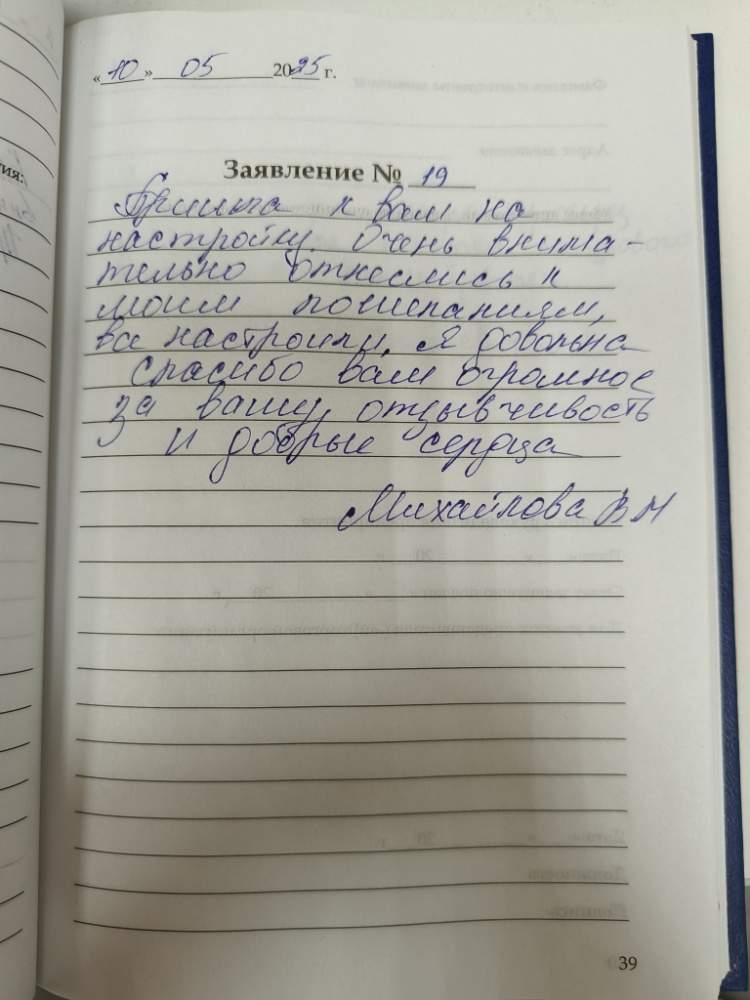 « 10 » 05 2025 г.
Заявление № 19
Пришла к вам на
настройку. Очень внима-
тельно отнеслись к
моим пожеланиям,
всё настроили. Я довольна
спасибо вам огромное
за вашу отзывчивость
и добрые сердца
Михайлова В Н
39